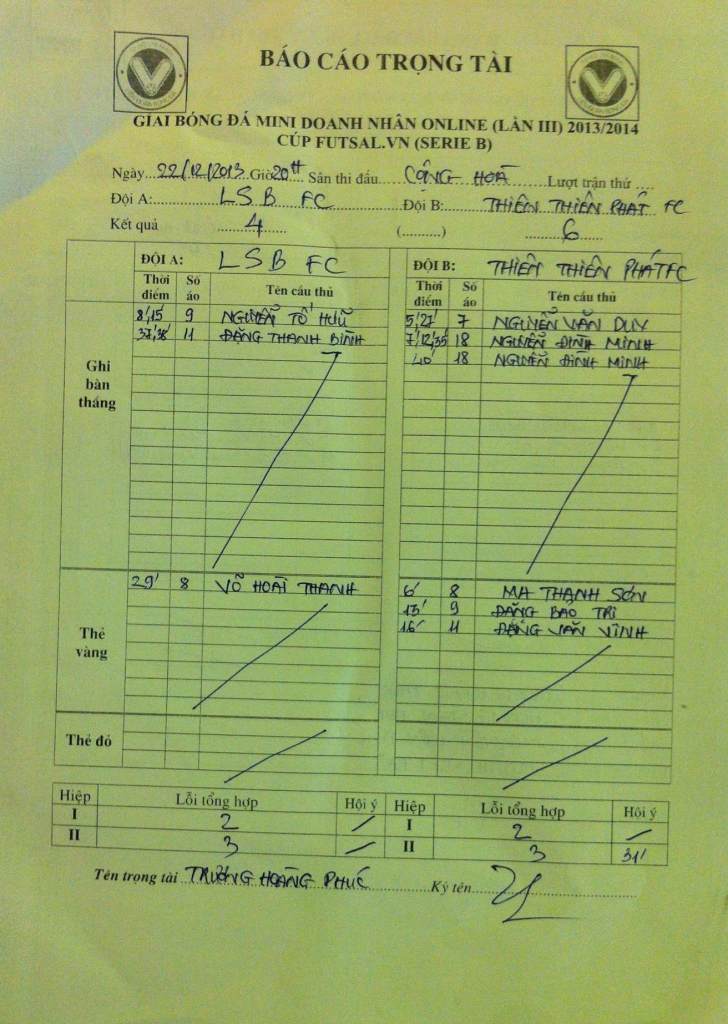 BÁO CÁO TRỌNG TÀI
GIẢI BÓNG ĐÁ MINI DOANH NHÂN ONLINE (LẦN III) 2013/2014
CÚP FUTSAL.VN (SERIE B)
Ngày 22/12/2013 Giờ 20H Sân thi đấu CỘNG HOÀ Lượt trận thứ ....
Đội A: LSB FC Đội B: THIÊN THIÊN PHÁT FC
Kết quả 4 (..........) 6
ĐỘI A: LSB FC ĐỘI B: THIÊN THIÊN PHÁT FC
Thời điểm Số áo Tên cầu thủ Thời điểm Số áo Tên cầu thủ
Ghi bàn thắng
8',15' 9 NGUYỄN TỐ HỮU 5',27' 7 NGUYỄN VĂN DUY
37',38' 11 ĐẶNG THANH BÌNH 7',12',35' 18 NGUYỄN ĐÌNH MINH
40' 18 NGUYỄN ĐÌNH MINH
Thẻ vàng
29' 8 VÕ HOÀI THANH 6' 8 MA THANH SƠN
15' 9 ĐẶNG BẢO TRÍ
16' 11 ĐẶNG VĂN VĨNH
Thẻ đỏ
Hiệp Lỗi tổng hợp Hội ý Hiệp Lỗi tổng hợp Hội ý
I 2 / I 2 /
II 3 / II 3 31'
Tên trọng tài TRƯƠNG HOÀNG PHÚC Ký tên